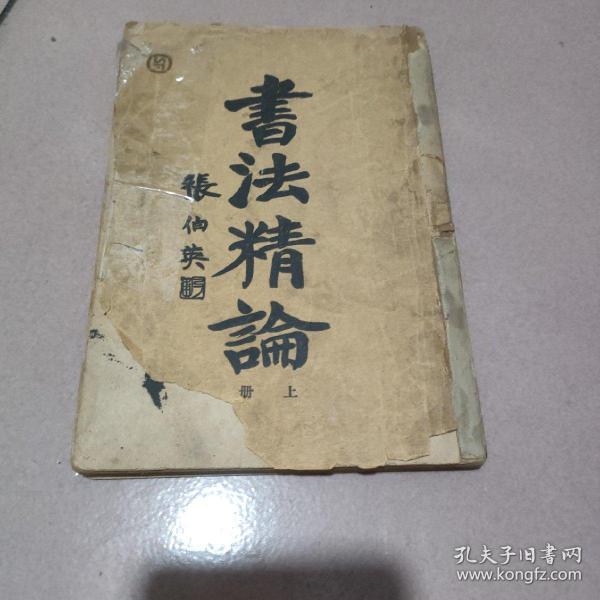 書法精論
張伯英
上册
孔夫子旧书网
www.kongfz.com